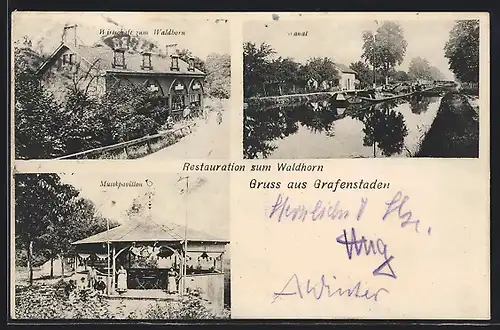 Wirtschaft zum Waldhorn
Kanal
Restauration zum Waldhorn
Musikpavillon
Gruss aus Grafenstaden
Hug
A Winter